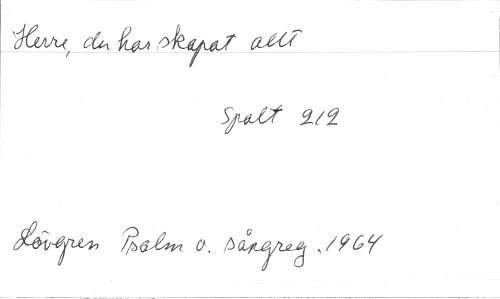 Herre, du har skapat allt
Spalt 212
Lövgren Psalm o. sångreg. 1964